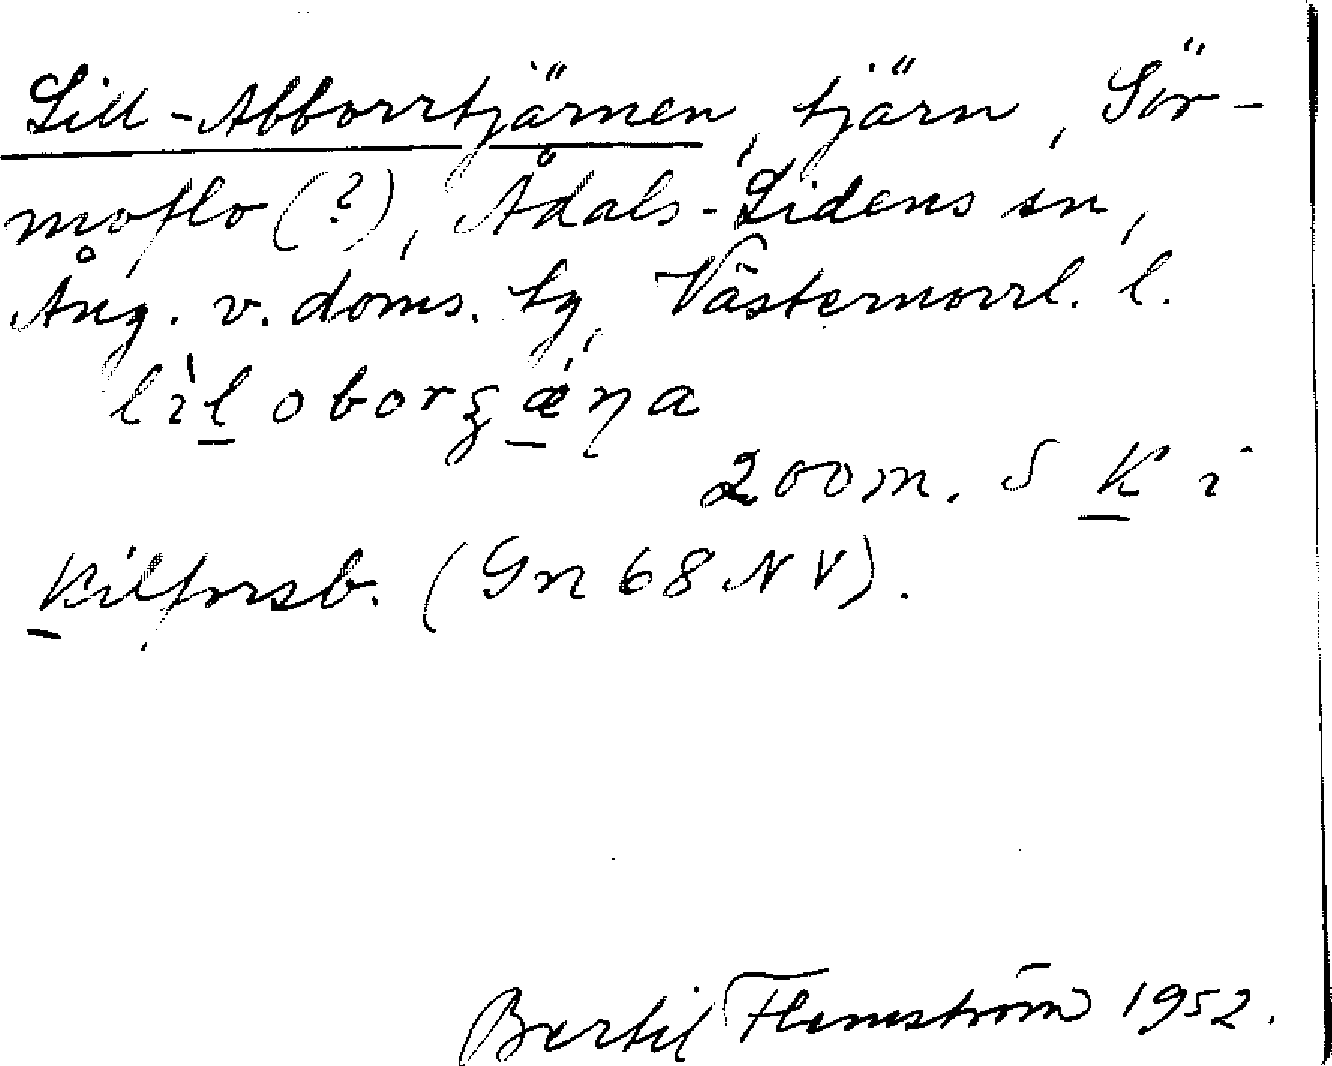 Lill-Abborrtjärnen, tjärn, Sör-
moflo (?), Ådals-Lidens sn,
Ång. v. doms. tg, Västernorrl. l.
200 m. S K i
Kilforsb. (Gn 68 NV).
Bertil Flemström 1952.